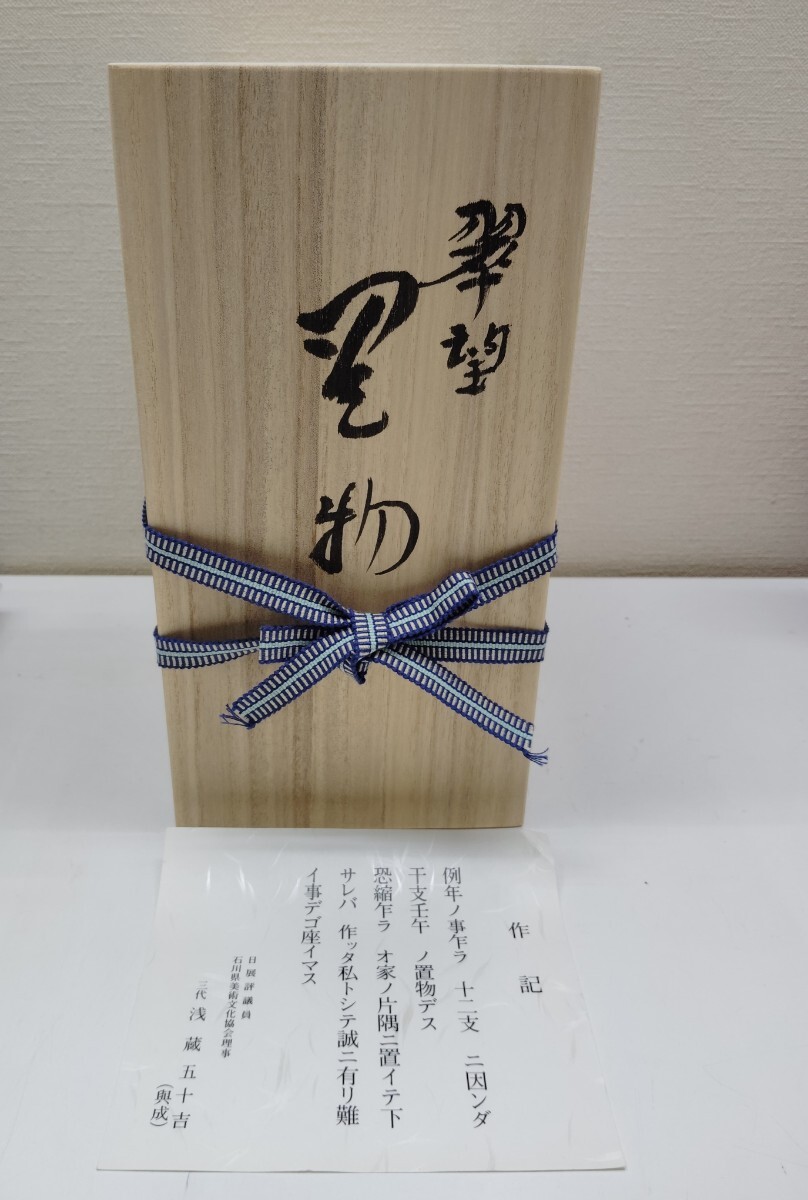 翠望
置物
作記
例年ノ事乍ラ 十二支 ニ因ンダ
干支壬午 ノ置物デス
恐縮乍ラ オ家ノ片隅ニ置イテ下
サレバ 作ッタ私トシテ誠ニ有リ難
イ事デゴ座イマス
日展評議員
石川県美術文化協会理事
三代 浅蔵五十吉
(與成)